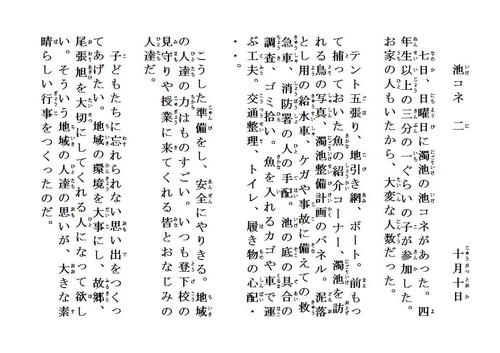 池コネ 二 十月十日
七日、日曜日に濁池の池コネがあった。四
年生以上の三分の一ぐらいの子が参加した。
お家の人もいたから、大変な人数だった。
テント五張り、地引き網、ボート。前もっ
て捕っておいた魚の紹介コーナー、濁池を訪
れる鳥の写真、濁池整備計画のパネル。泥落
とし用の給水車、ケガや事故に備えての救
急車、消防署の人の手配。池の底の具合の
調査、ゴミ拾い。魚を入れるカゴや車で運
ぶ工夫。交通整理、トイレ、履き物の心配・
・・。
こうした準備をし、安全にやりきる。地域
の人達の力はものすごい。いつも登下校の
見守りや授業に来てくれる皆とおなじみの
人達だ。
子どもたちに忘れられない思い出をつくっ
てあげたい。地域の環境を大事にし、故郷、
尾張旭を大切にしてくれる人になって欲し
い。そういう地域の人達の思いが、大きな素
晴らしい行事をつくったのだ。